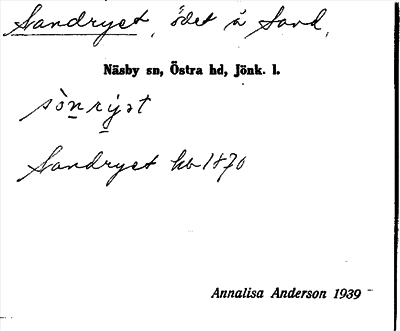 Sandryet, ödet å Sand,
Näsby sn, Östra hd, Jönk. l.
Sandryet hb 1870
Annalisa Anderson 1939